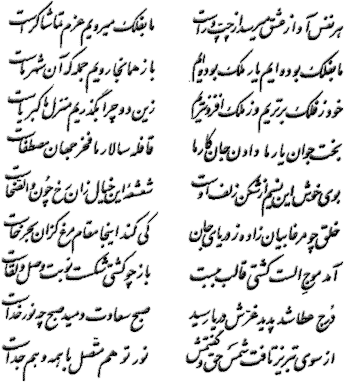 هر نفس آواز عشق میرسد از چپ و راست ما بفلک میرویم عزم تماشا کراست
ما بفلک بوده ایم یار ملک بوده ایم باز همانجا رویم جمله که آن شهر ماست
خود ز فلک برتریم وز ملک افزونتریم زین دو چرا نگذریم منزل ما کبریاست
بخت جوان یار ما دادن جان کار ما قافله سالار ما فخر جهان مصطفاست
بوی خوش این نسیم از شکن زلف اوست شعشعه این خیال زان رخ چون والضحاست
خلق چو مرغابیان زاده ز دریای جان کی کند اینجا مقام مرغ کزان بحر خاست
آمد موج الست کشتی قالب ببست باز چو کشتی شکست نوبت وصل و لقاست
درج عطا شد پدید غرش دریا رسید صبح سعادت دمید صبح چه نور خداست
از سوی تبریز تافت شمس حق و گفتمش نور تو هم متصل با همه و هم جداست